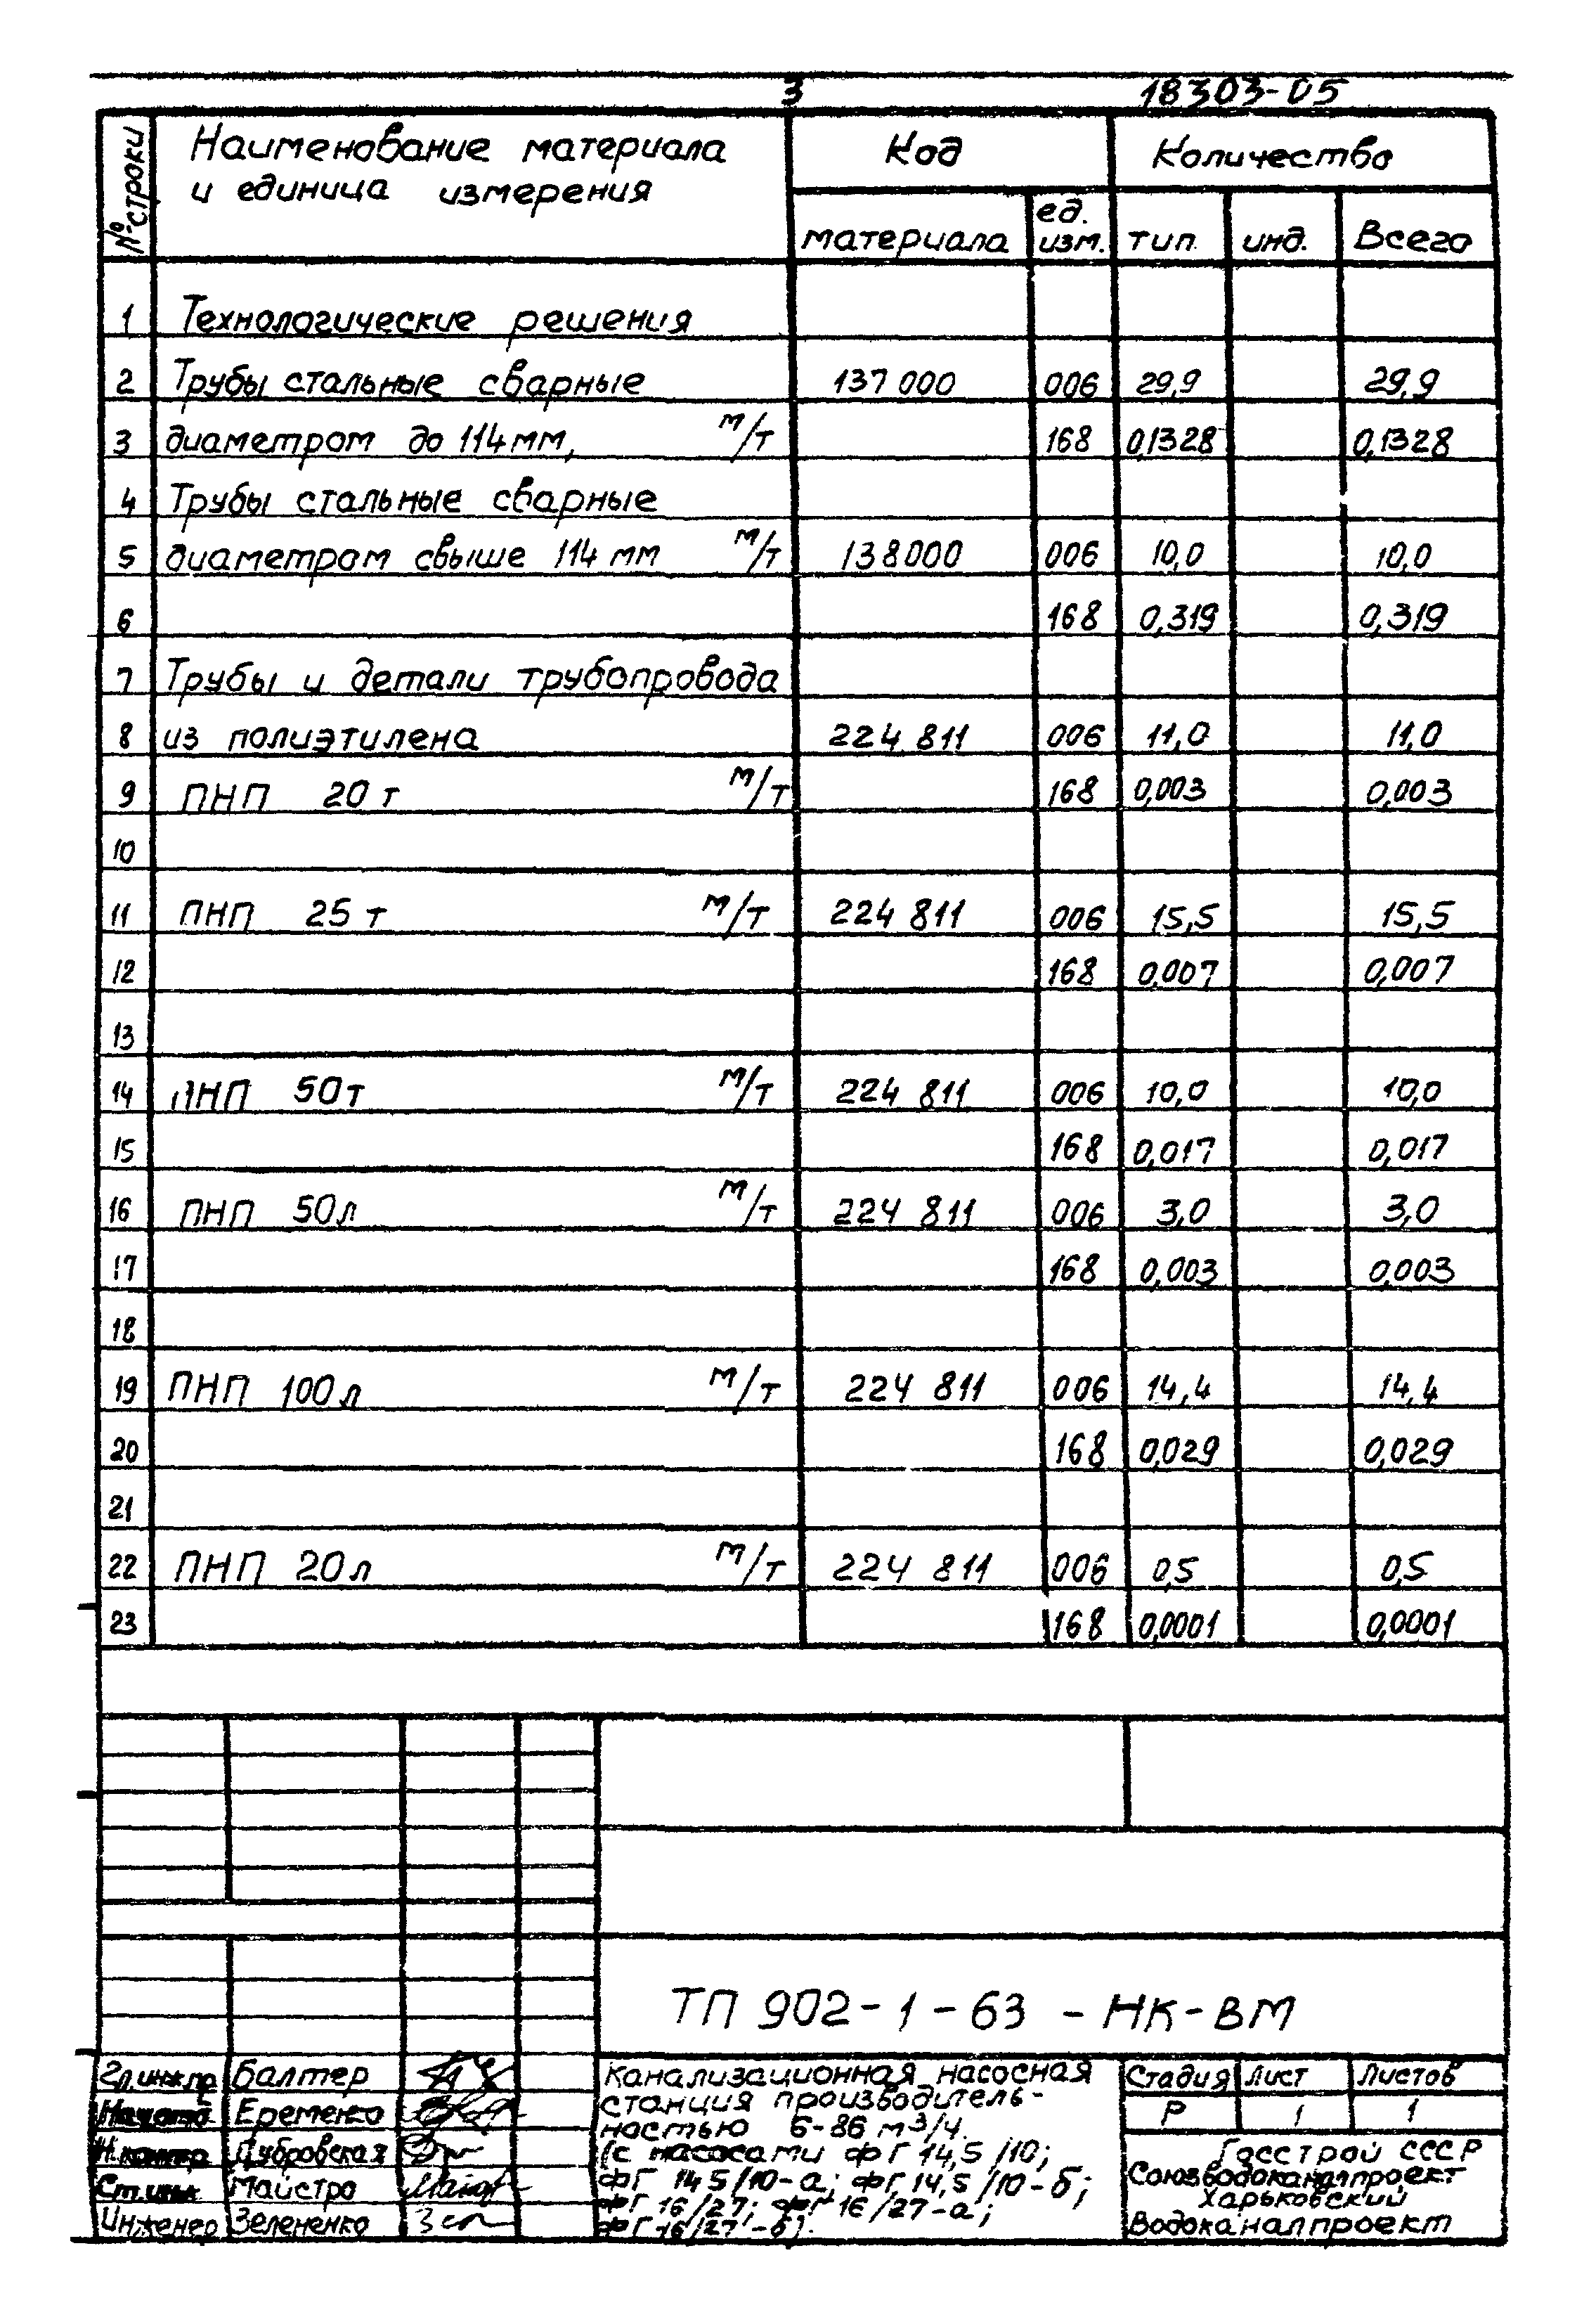 3 18303-05
№ строки Наименование материала и единица измерения Код Количество
материала ед. изм. тип. инд. Всего
1 Технологические решения
2 Трубы стальные сварные 137 000 006 29,9 29,9
3 диаметром до 114 мм, м/т 168 0,1328 0,1328
4 Трубы стальные сварные
5 диаметром свыше 114 мм м/т 138000 006 10,0 10,0
6 168 0,319 0,319
7 Трубы и детали трубопровода
8 из полиэтилена 224 811 006 11,0 11,0
9 ПНП 20 т м/т 168 0,003 0,003
10
11 ПНП 25 т м/т 224 811 006 15,5 15,5
12 168 0,007 0,007
13
14 ПНП 50т м/т 224 811 006 10,0 10,0
15 168 0,017 0,017
16 ПНП 50л м/т 224 811 006 3,0 3,0
17 168 0,003 0,003
18
19 ПНП 100л м/т 224 811 006 14,4 14,4
20 168 0,029 0,029
21
22 ПНП 20л м/т 224 811 006 0,5 0,5
23 168 0,0001 0,0001
ТП 902-1-63-НК-ВМ
Гл.инж.пр Балтер
Еременко
Н.контр Дубровская
Ст.инж Майстро
Инженер Зелененко
Канализационная насосная
станция производитель-
ностью 6-86 м³/ч.
(с насосами ФГ 14,5/10;
ФГ 14,5/10-а; ФГ 14,5/10-б;
ФГ 16/27; ФГ 16/27-а;
ФГ 16/27-б).
Стадия Лист Листов
Р 1 1
Госстрой СССР
Союзводоканалпроект
Харьковский
Водоканалпроект